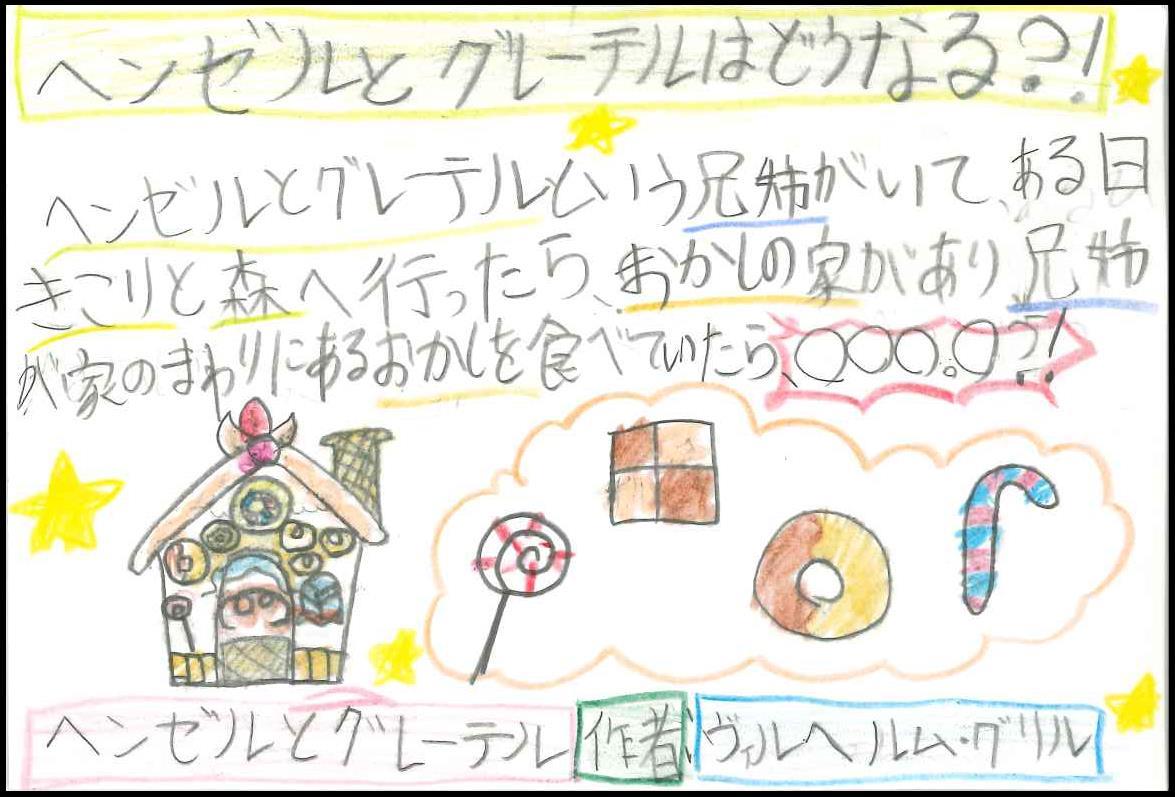 ヘンゼルとグレーテルはどうなる?!
ヘンゼルとグレーテルという兄姉がいて、ある日
きこりと森へ行ったら、おかしの家があり、兄姉
が家のまわりにあるおかしを食べていたら、○○○。○?!
ヘンゼルとグレーテル 作者 ヴィルヘルム・グリル